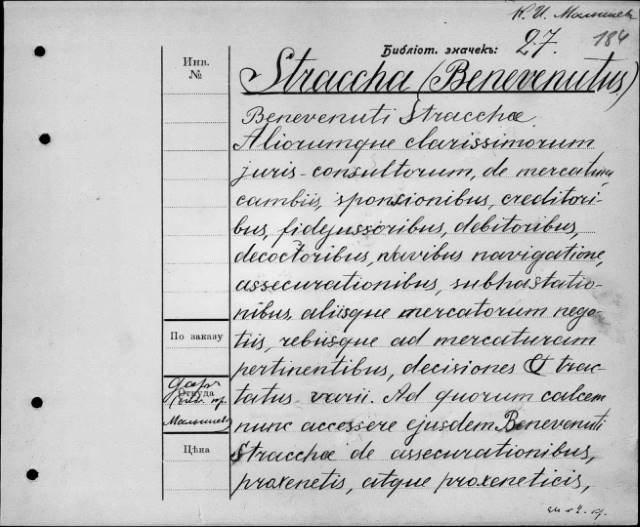 К. И. Малышев
184
Библіот. значекъ: 27.
Инв.
№
Straccha (Benevenutus)
Benevenuti Stracchæ
Aliorumque clarissimorum
juris-consultorum, de mercatura,
cambiis, sponsionibus, creditori-
bus, fidejussoribus, debitoribus,
decoctoribus, navibus navigatione,
assecurationibus, subhastatio-
nibus, aliisque mercatorum nego-
tiis, rebusque ad mercaturam
pertinentibus, decisiones & trac-
tatus varii. Ad quorum calcem
nunc accessere ejusdem Benevenuti
Stracchæ de assecurationibus,
proxenetis, atque proxeneticis,
По заказу
Откуда
Малышева
Цѣна